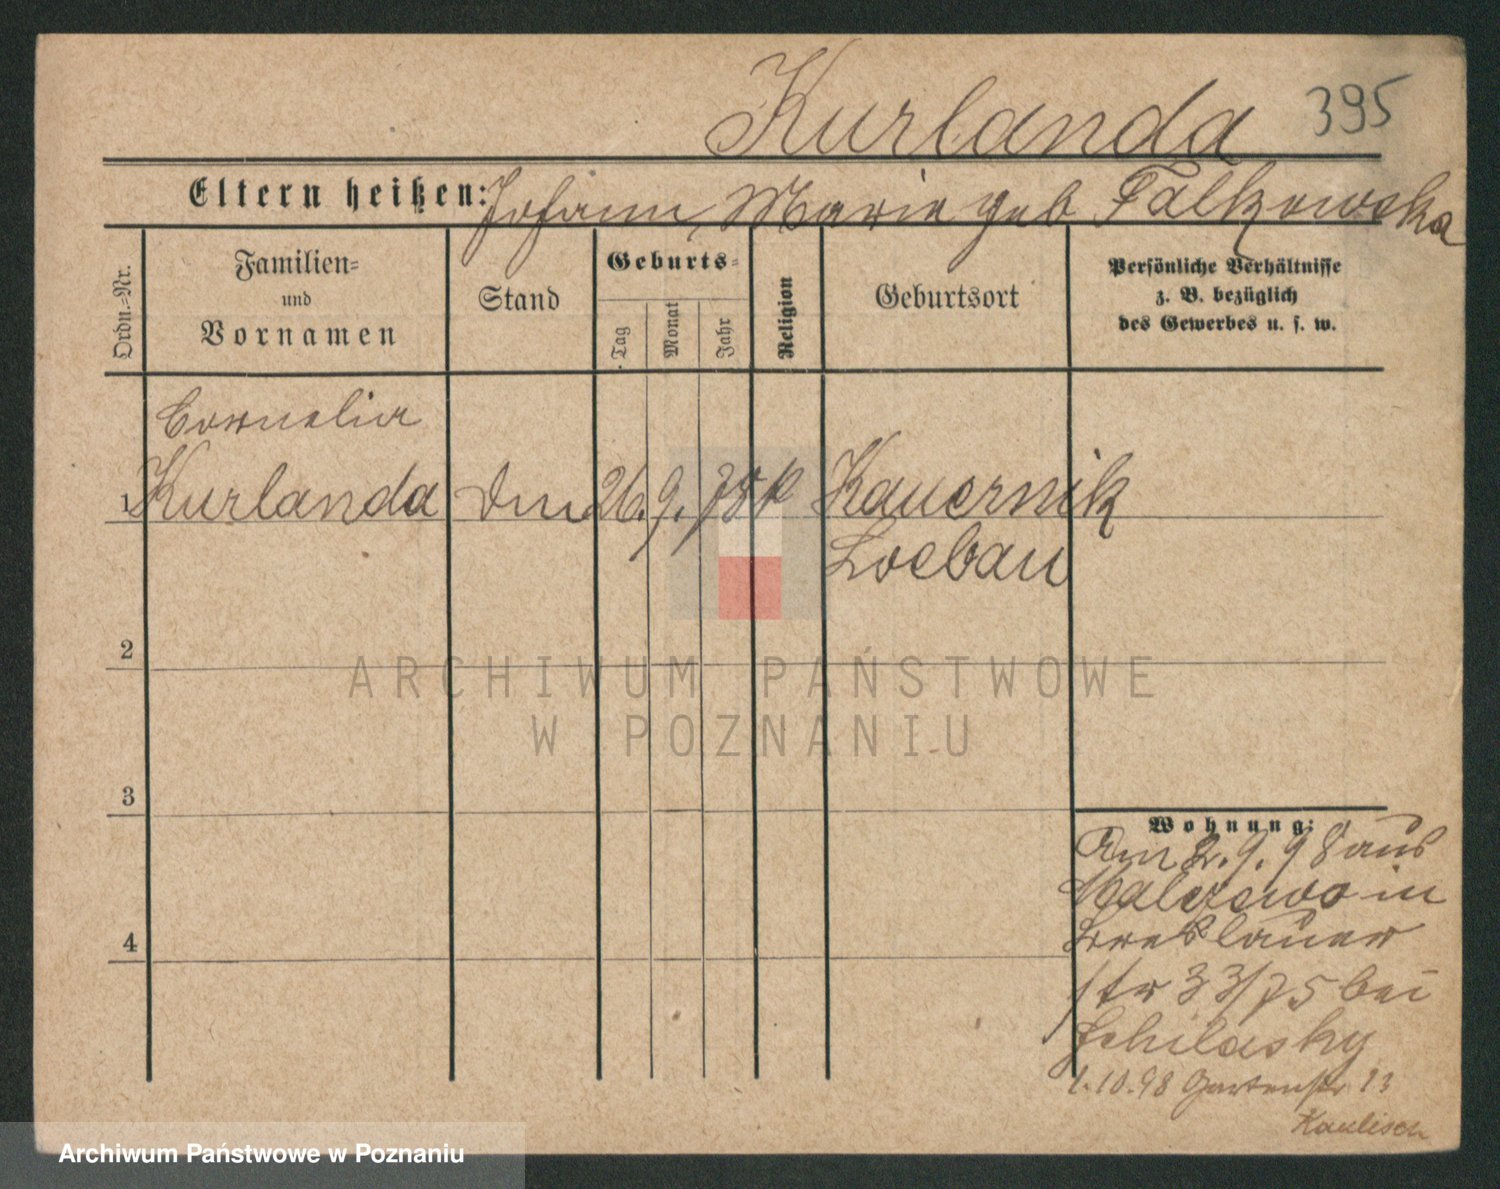 Kurlanda 395
Eltern heißen: Johann, Marie geb Falkowska
Ordn.-Nr.
Familien-
und
Vornamen
Stand
Geburts-
Tag
Monat
Jahr
Religion
Geburtsort
Persönliche Verhältnisse
z. B. bezüglich
des Gewerbes u. s. w.
Cornelia
1 Kurlanda 26. 9. 78 k Kauernik
Loebau
2
ARCHIWUM PAŃSTWOWE
W POZNANIU
3
Wohnung:
Am 2. 9. 98 aus
Malczewo in
Breslauer
str 33/75 bei
1.10.98 Gartenstr 13
4
Archiwum Państwowe w Poznaniu